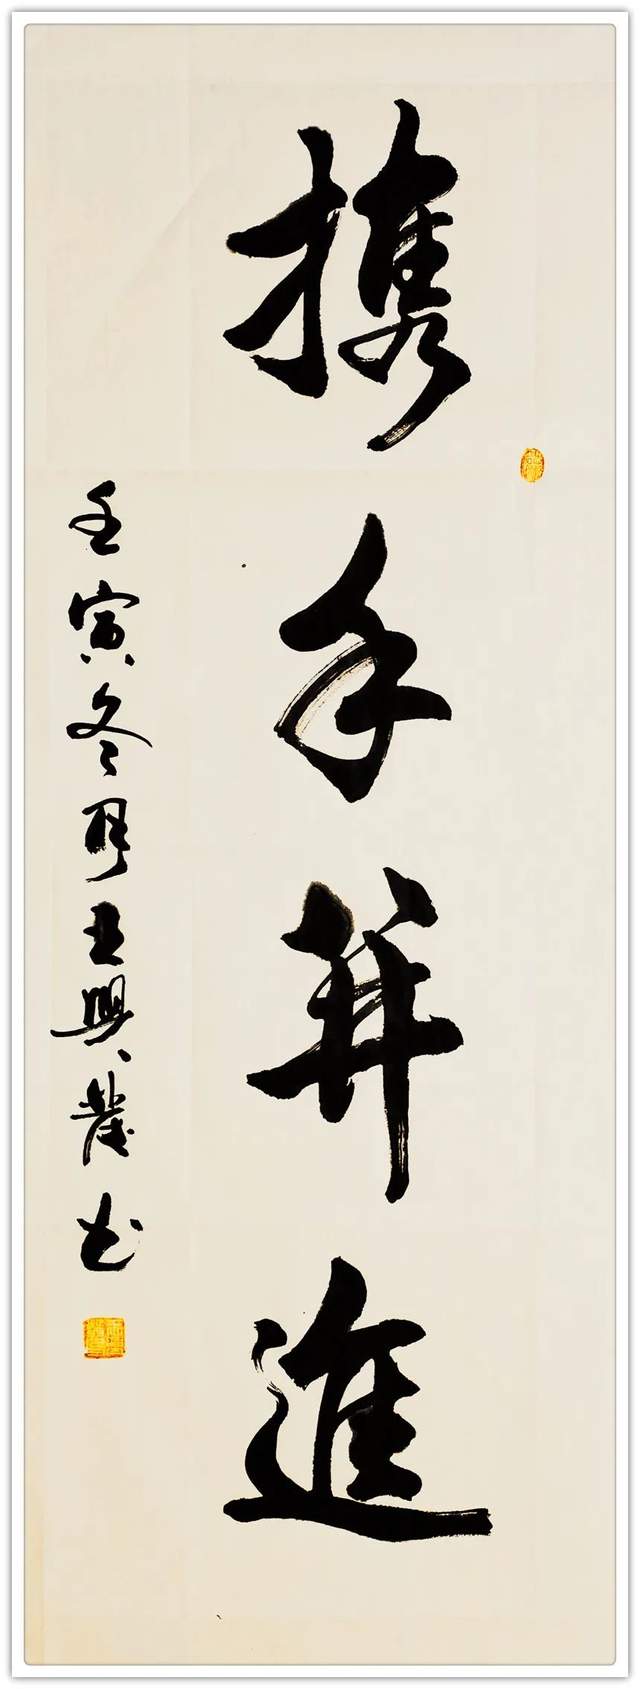 携手并進
壬寅冬月王興業书